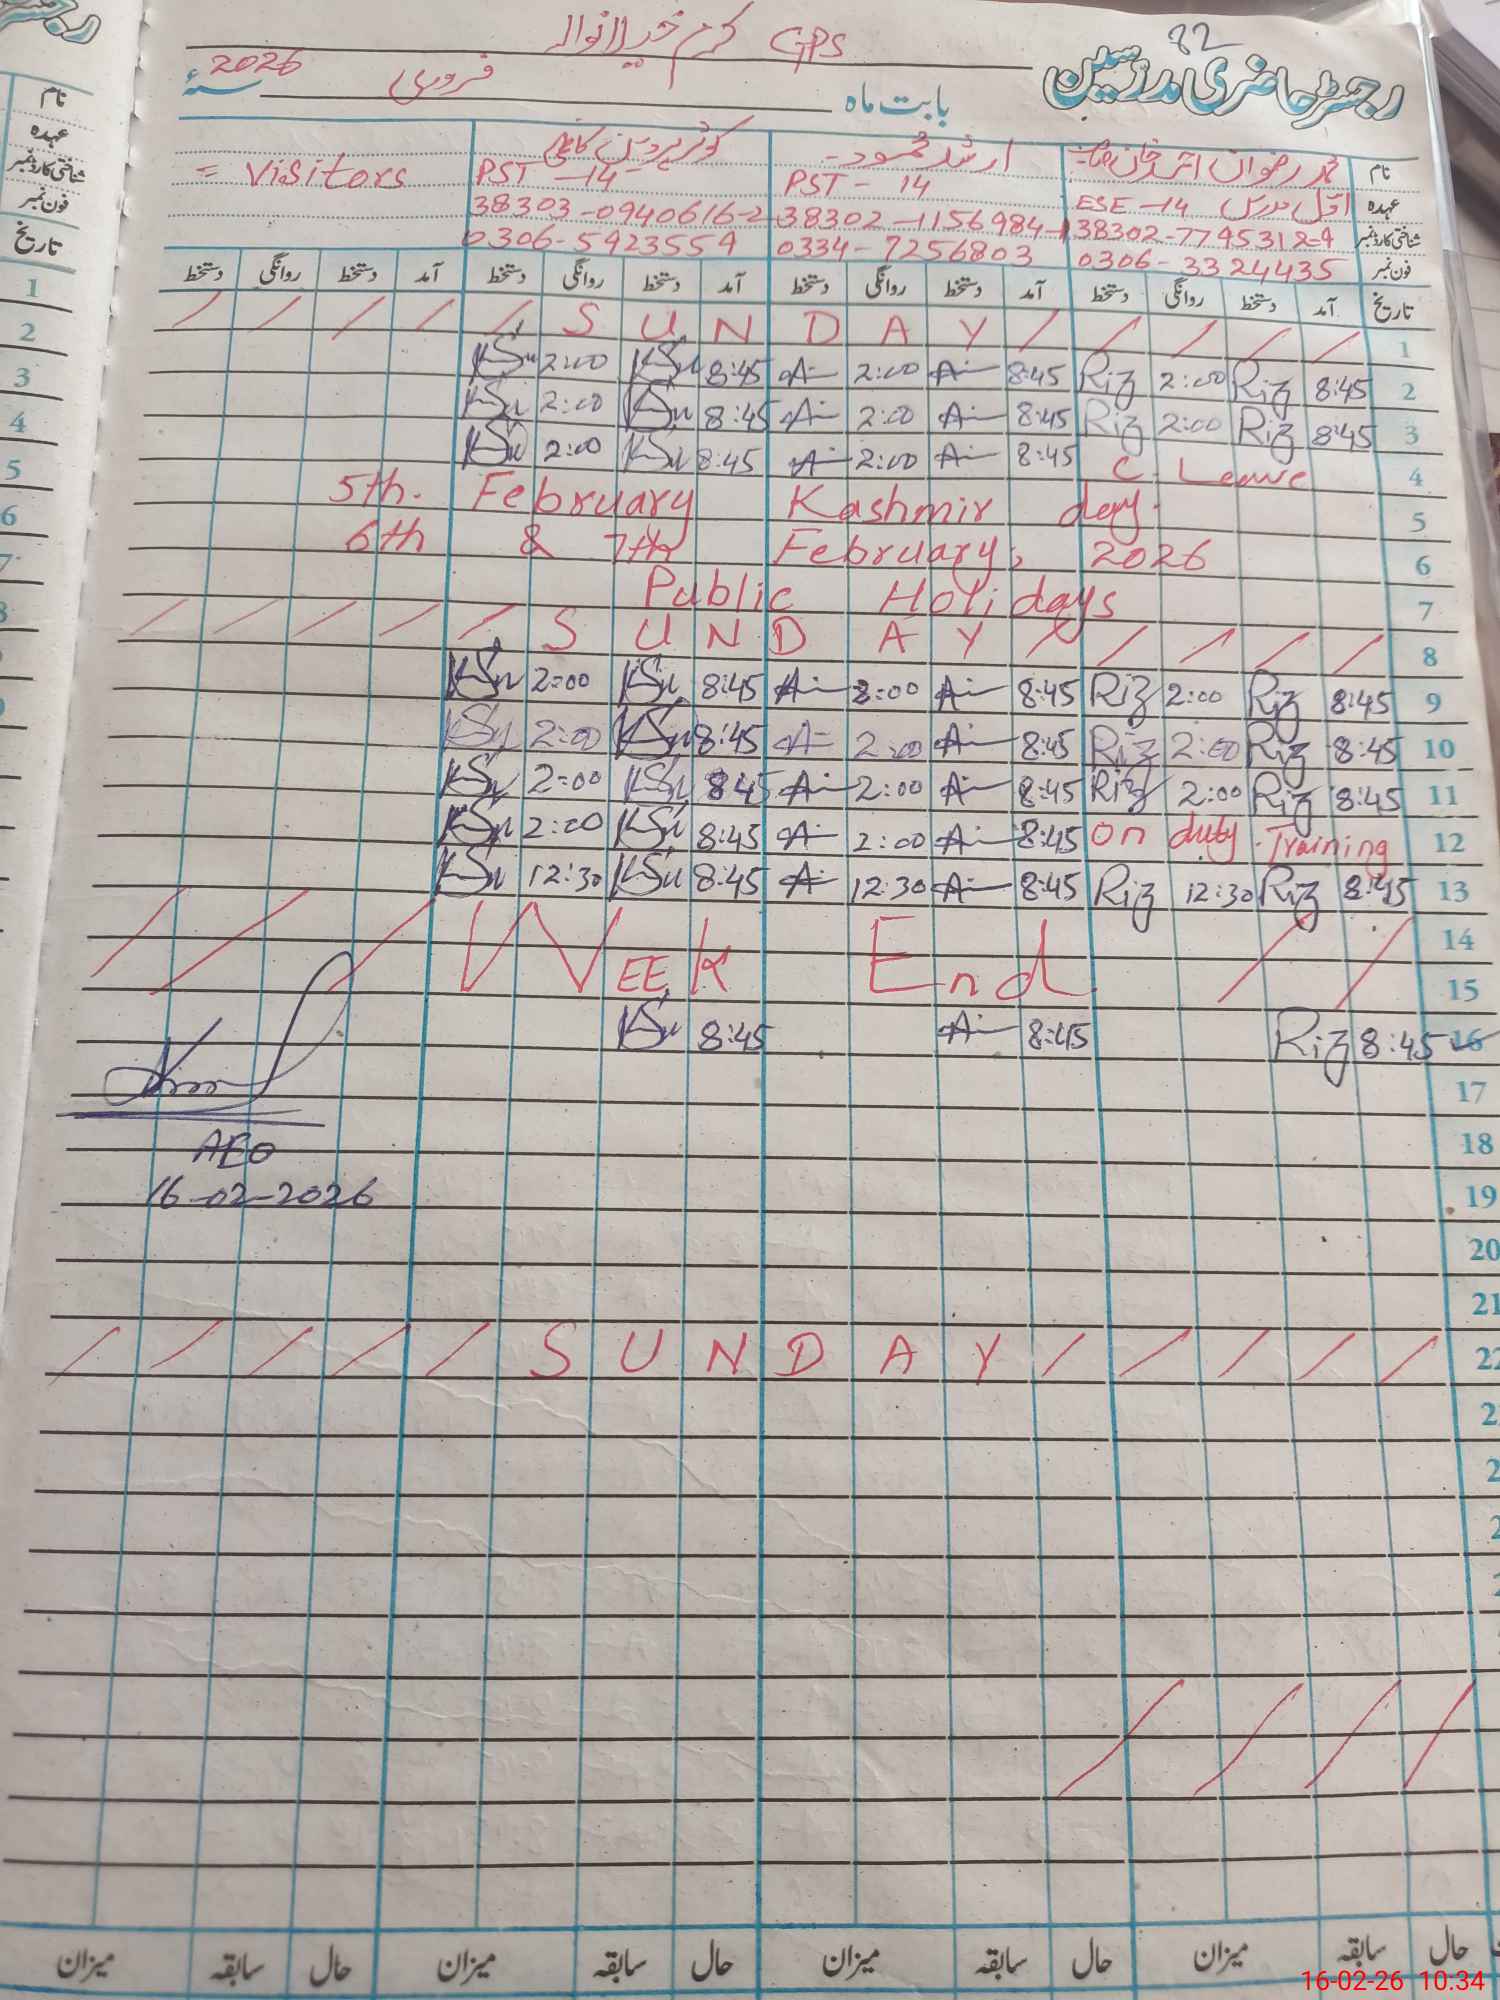 82
GPS کرم خیلانوالہ
رجسٹر حاضری مدرسین
بابت ماہ فروری 2026 سنہء
نام محمد رضوان ارشد محمود کوثر پروین = Visitors
عہدہ اول مدرس ESE-14 PST-14 PST-14
شناختی کارڈ نمبر 38302-7745312-9 38302-1156984-1 38303-0940616-2
فون نمبر 0306-3324435 0334-7256803 0306-5923559
تاریخ آمد دستخط روانگی دستخط آمد دستخط روانگی دستخط آمد دستخط روانگی دستخط آمد دستخط روانگی دستخط
1 / / / / / S U N D A Y / / / / /
2 8:45 Riz 2:00 Riz 8:45 A 2:00 A 8:45 KSu 2:00 KSu
3 8:45 Riz 2:00 Riz 8:45 A 2:00 A 8:45 KSu 2:00 KSu
4 C Leave 8:45 A 2:00 A 8:45 KSu 2:00 KSu
5 5th. February Kashmir day.
6 6th & 7th February, 2026
7 Public Holidays
8 / / / / / S U N D A Y / / / / /
9 8:45 Riz 2:00 Riz 8:45 A 2:00 A 8:45 KSu 2:00 KSu
10 8:45 Riz 2:00 Riz 8:45 A 2:00 A 8:45 KSu 2:00 KSu
11 8:45 Riz 2:00 Riz 8:45 A 2:00 A 8:45 KSu 2:00 KSu
12 on duty Training 8:45 A 2:00 A 8:45 KSu 2:00 KSu
13 8:45 Riz 12:30 Riz 8:45 A 12:30 A 8:45 KSu 12:30 KSu
14
15 WEEK End
16 8:45 Riz 8:45 A 8:45 KSu
17
18 AEO
19 16-02-2026
20
21
22 / / / / / S U N D A Y / / / / /
حال سابقہ میزان حال سابقہ میزان حال سابقہ میزان حال سابقہ میزان
16-02-26 10:34
نام
عہدہ
شناختی کارڈ نمبر
فون نمبر
تاریخ
1
2
3
4
5
6
7
8